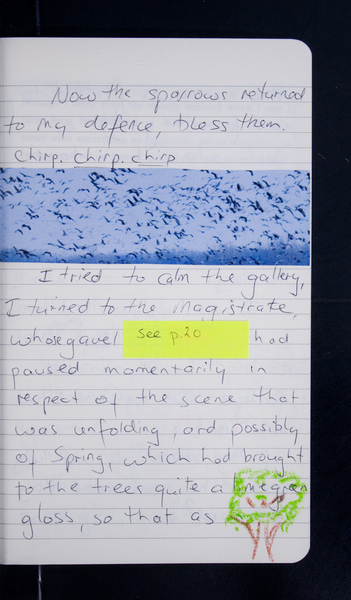 Now the sparrows returned
to my defence, bless them.
Chirp. chirp. chirp
I tried to calm the gallery,
I turned to the magistrate,
whose gavel see p.20 had
paused momentarily in
respect of the scene that
was unfolding, and possibly
of Spring, which had brought
to the trees quite a limegreen
gloss, so that as